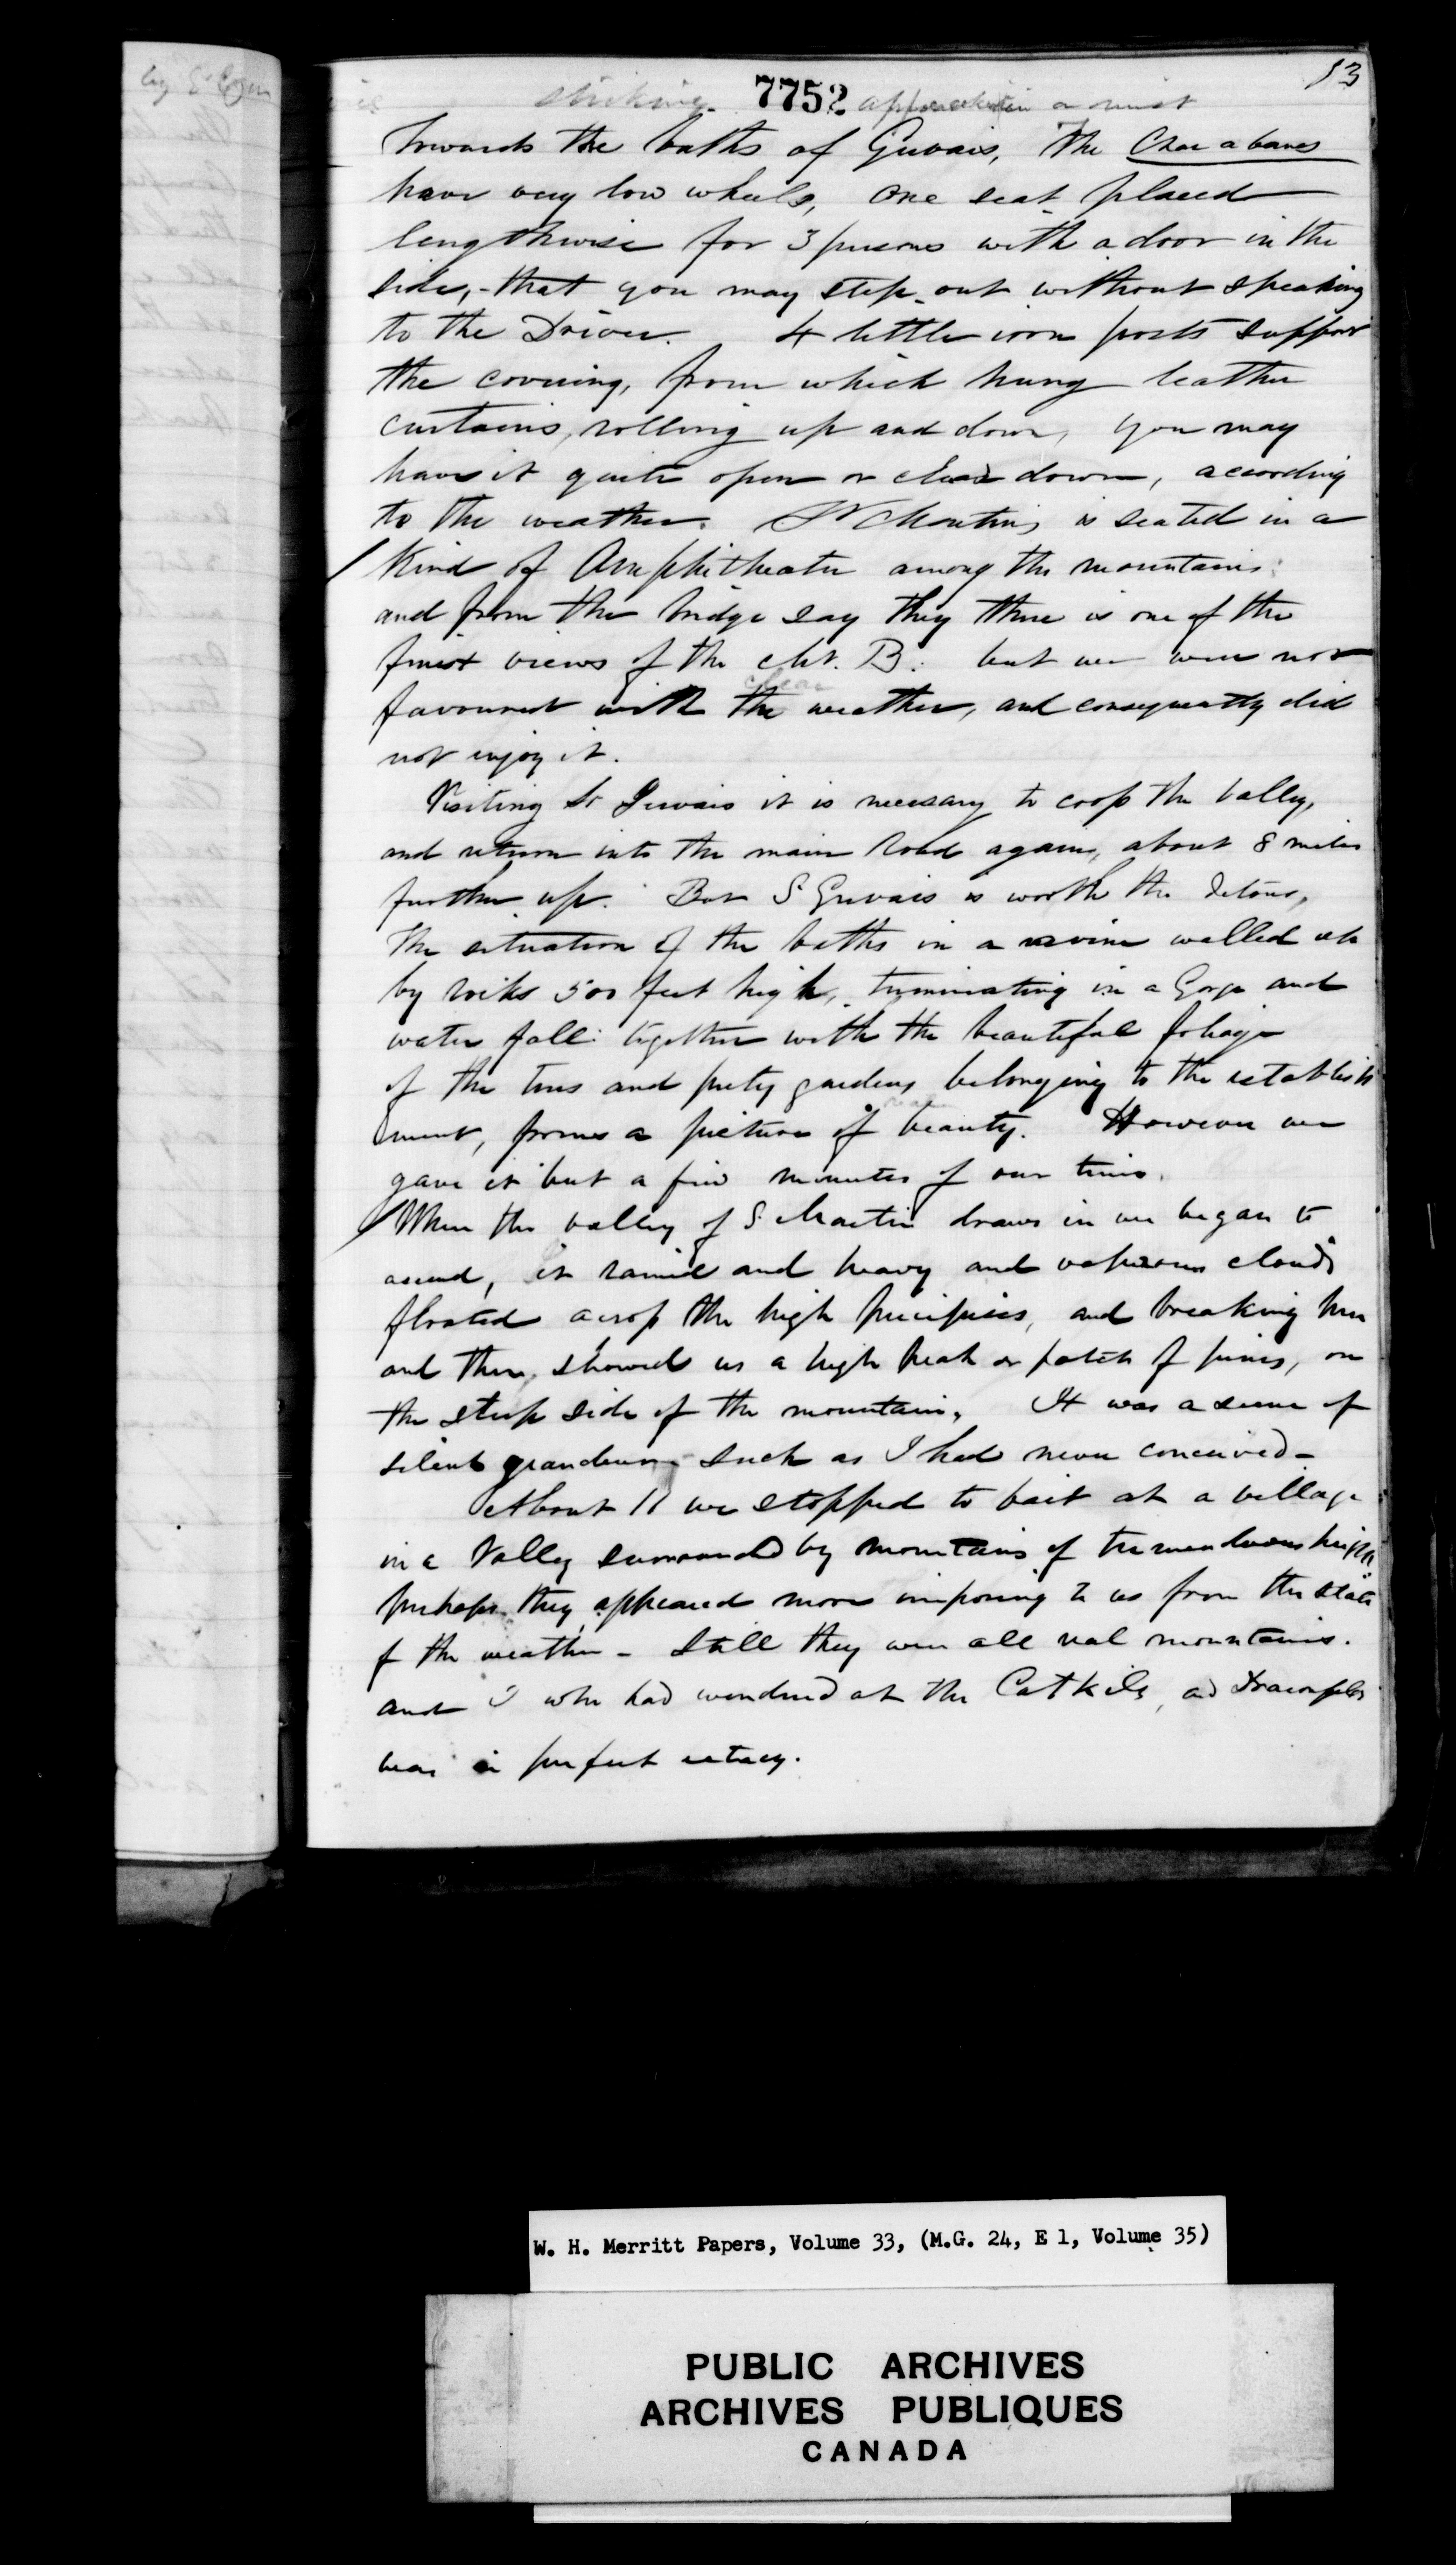 13
striking 7752
towards the baths of Gervais, The Char a bancs
have very low wheels, one seat placed
lengthwise for 3 persons with a door in the
side, - that you may step out without speaking
to the Driver. 4 little iron posts support
the covering, from which hung leather
curtains, rolling up and down, you may
have it quite open or close down, according
to the weather. St Martins is seated in a
kind of Amphitheater among the mountains
and from the bridge say they there is one of the
finest views of the Mt. B. but we were not
clear
favoured with the weather, and consequently did
not enjoy it.
Visiting St Gervais it is necessary to cross the valley,
and return into the main road again, about 8 miles
further up. But St Gervais is worth the detour,
The situation of the baths in a ravine walled up
by rocks 500 feet high, terminating in a Gorge and
water fall: together with the beautiful foliage
of the trees and pretty gardens belonging to the establish
ment, forms a picture of beauty. However we
gave it but a few minutes of our time.
When the valley of St Martin draws in we began to
ascend, it rained and heavy and vaporous clouds
floated across the high precipices, and breaking here
and there, showed us a high peak or patch of pines, on
the steep side of the mountain. It was a scene of
silent grandeur such as I had never conceived -
About 11 we stopped to bait at a village
in a Valley surrounded by mountains of tremendous height
perhaps they appeared more imposing to us from the state
of the weather - Still they were all real mountains.
and I who had wondered at the Catkils, and
was in perfect extacy.
W. H. Merritt Papers, Volume 33, (M.G. 24, E 1, Volume 35)
PUBLIC ARCHIVES
ARCHIVES PUBLIQUES
CANADA